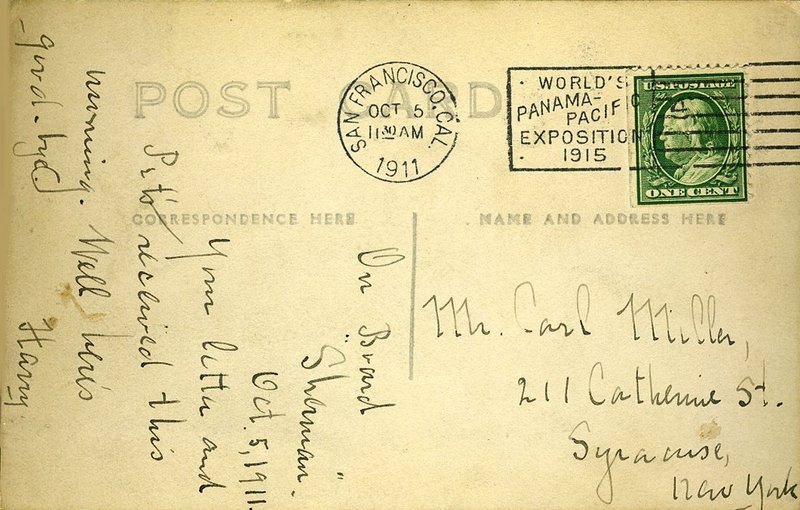 POST CARD
SAN FRANCISCO, CAL.
OCT 5
11 30 AM
1911
WORLD'S
PANAMA-
PACIFIC
EXPOSITION
1915
U.S. POSTAGE
ONE CENT
CORRESPONDENCE HERE
NAME AND ADDRESS HERE
On Board
"Sherman".
Oct. 5, 1911.
Your letter and
received this
morning. Well here's
- good-bye.
Harry
Mr. Carl Miller,
211 Catherine St.
Syracuse,
New York